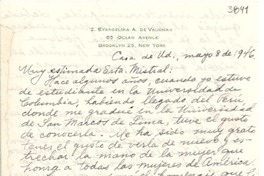 3841
Z. EVANGELINA A. DE VAUGHAN
65 OCEAN AVENUE
BROOKLYN 25, NEW YORK
Casa de Ud., mayo 8 de 1946
Muy estimada Srta. Mistral:
Hace algunos años, cuando yo estuve
de estudiante en la Universidad de
Columbia, habiendo llegado del Perú
donde me gradué en la Universidad
de San Marcos de Lima, tuve el gusto
de conocerla. Me ha sido muy grato
tener el gusto de verla de nuevo y es-
trechar la mano de la mujer que
honra a todas las mujeres de América.